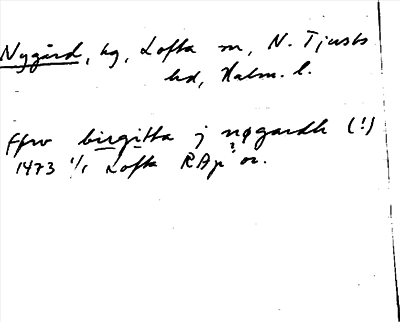 Nygård, hg, Lofta sn, N. Tjusts
hd, Kalm. l.
Ffrv birgitta j nøgardh (!)
1473 1/1 Lofta RAp or.